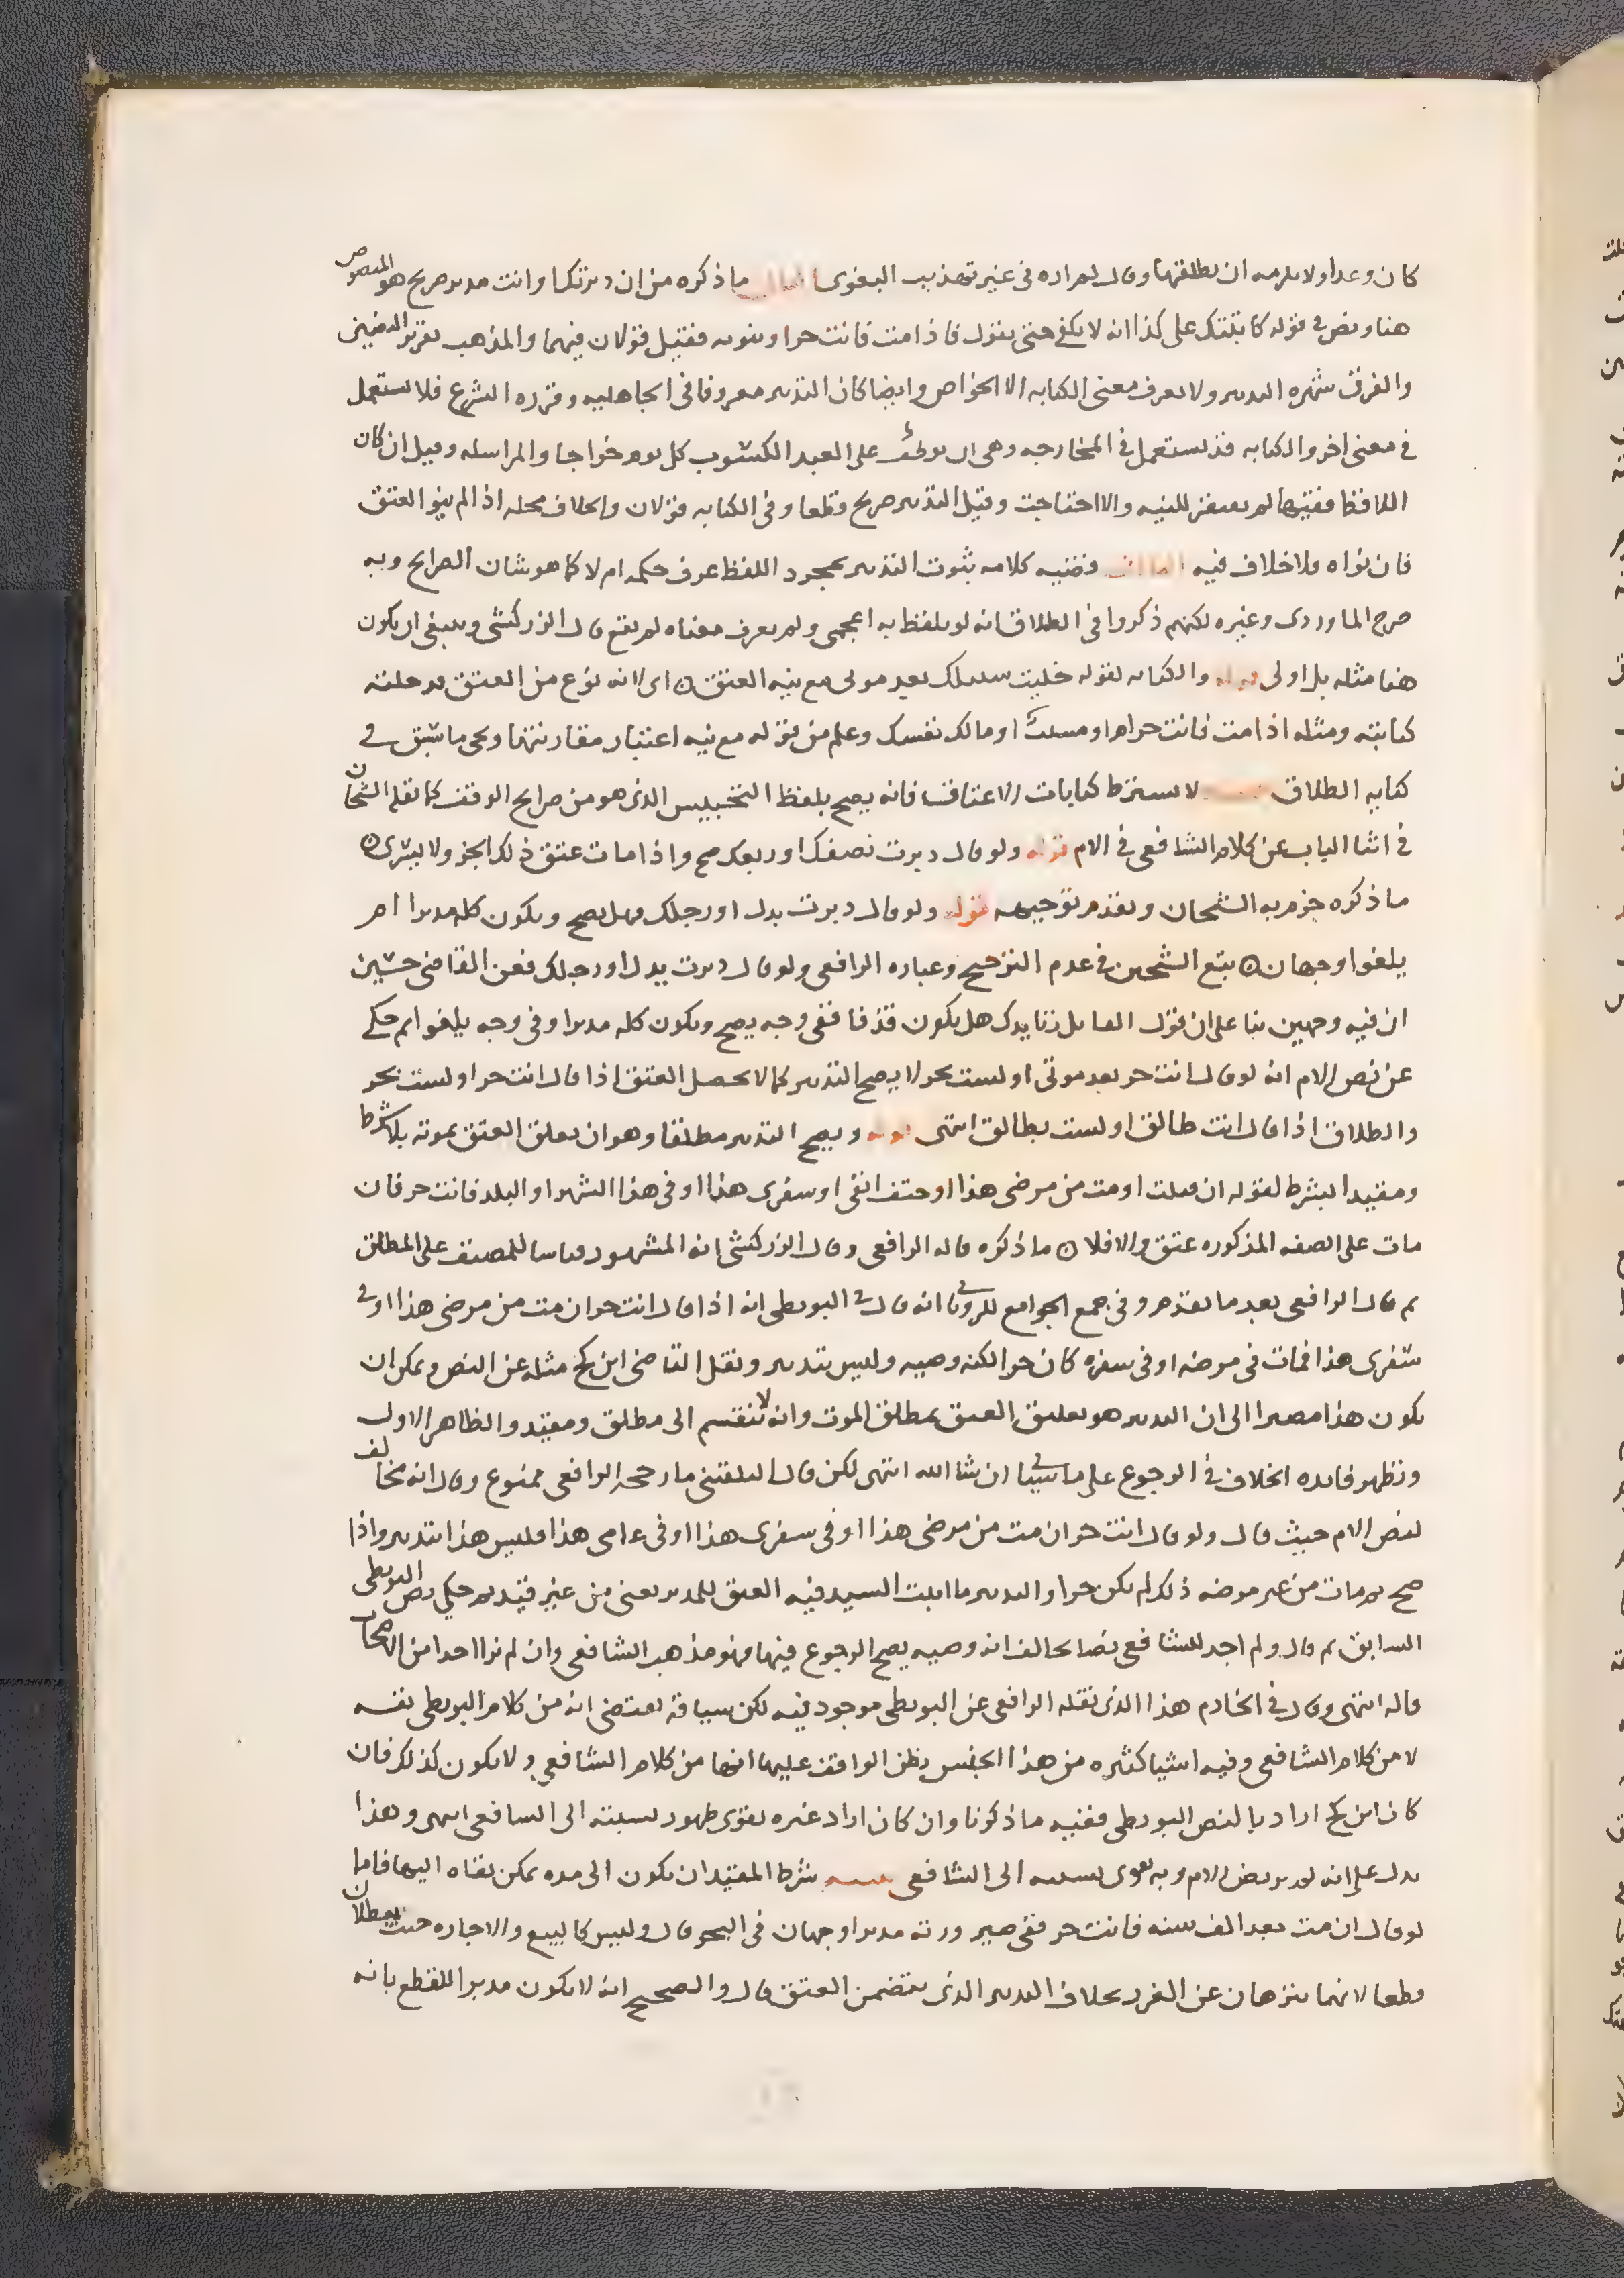 كان وعدا ولا يلزمه ان يطلقها وقال لم اره في غير تهذيب البغوي ما ذكره من ان دبرتك او انت مدبر صريح هو المنصوص
هنا ونص في قوله كاتبتك على كذا انه لا يكفي حتى يقول فاذا مت فانت حر او ينويه فقيل قولان فيهما والمذهب تقرير النصين
والفرق شهره التدبير ولا يعرف معنى الكتابه الا الخواص وايضا كان التدبير معروفا في الجاهليه وقرره الشرع فلا يستعمل
في معنى اخر والكتابه قد تستعمل في المخارجه وهي ان يوظف على العبد الكسوب كل يوم خراجا والمراسله وقيل ان كان
اللافظ فقيها لم يفتقر للنيه والا احتاجت وقيل التدبير صريح قطعا وفي الكتابه قولان والخلاف محله اذا لم ينو العتق
فان نواه فلا خلاف فيه الثالث قضيه كلامه ثبوت التدبير بمجرد اللفظ عرف حكمه ام لا كما هو شان الصرايح وبه
صرح الماوردي وغيره لكنهم ذكروا في الطلاق انه لو تلفظ به اعجمي ولم يعرف معناه لم يقع قال الزركشي وينبغي ان يكون
هنا مثله بل اولى قوله والكنايه لقوله خليت سبيلك بعد موتي مع نيه العتق ه اي لانه نوع من العتق فدخلته
كنايته ومثله اذا مت فانت حرام او مسيب او مالك نفسك وعلم من قوله مع نيه اعتبار مقارنتها ويجي ما سبق في
كنايه الطلاق لا يشترط كنايات الاعتاق فانه يصح بلفظ التحبيس الذي هو من صرايح الوقف كما نقله الشيخان
في اثنا الباب عن كلام الشافعي في الام قوله ولو قال دبرت نصفك او ربعك صح واذا مات عتق ذلك الجز ولا يسري ه
ما ذكره جزم به الشيخان وتقدم توجيهه قوله ولو قال دبرت يدك او رجلك فهل يصح ويكون كله مدبرا ام
يلغوا وجهان ه تبع الشيخين في عدم الترجيح وعباره الرافعي ولو قال دبرت يدك او رجلك فعن القاضي حسين
ان فيه وجهين بنا على ان قول القايل زنا يدك هل يكون قذفا ففي وجه يصح ويكون كله مدبرا وفي وجه يلغو ثم حكى
عن نص الام انه لو قال انت حر بعد موتي او لست بحر لا يصح التدبير كما لا يحصل العتق اذا قال انت حر او لست بحر
والطلاق اذا قال انت طالق او لست بطالق انتهى قوله ويصح التدبير مطلقا وهو ان يعلق العتق بموته بلا شرط
ومقيدا بشرط لقوله ان قتلت او مت من مرضي هذا او حتف انفي او سفري هذا او في هذا الشهر او البلد فانت حر فان
مات على الصفه المذكوره عتق والا فلا ه ما ذكره قاله الرافعي وقال الزركشي انه المشهور قياسا للمصنف على المطلق
ثم قال الرافعي بعد ما تقدم وفي جمع الجوامع للروياني انه قال في البويطي انه اذا قال انت حر ان مت من مرضي هذا او في
سفري هذا فمات في مرضه او في سفره كان حرا لكنه وصيه وليس بتدبير ونقل القاضي ابن كج مثله عن النص ويمكن ان
يكون هذا مصيرا الى ان التدبير هو تعليق العتق بمطلق الموت وانه لا ينقسم الى مطلق ومقيد والظاهر الاول
وتظهر فايده الخلاف في الرجوع على ما سياتي ان شا الله انتهى لكن قال البلقيني ما رجحه الرافعي ممنوع وقال انه مخالف
لنص الام حيث قال ولو قال انت حر ان مت من مرضي هذا او في سفري هذا او في عامي هذا فليس هذا بتدبير واذا
صح ثم مات من غير مرضه ذلك لم يكن حرا والتدبير ما اثبت السيد فيه العتق للمدبر يعني من غير قيد ثم حكي نص البويطي
السابق ثم قال ولم اجد للشافعي نصا يخالف انه وصيه يصح الرجوع فيها فهو مذهب الشافعي وان لم نر احدا من الاصحاب
قاله انتهى وقال في الخادم هذا الذي نقله الرافعي عن البويطي موجود فيه لكن سياقه يقتضي انه من كلام البويطي نفسه
لا من كلام الشافعي وفيه اشيا كثيره من هذا الجنس يظن الواقف عليها انها من كلام الشافعي ولا يكون كذلك فان
كان ابن كج اراد بالنص البويطي ففيه ما ذكرنا وان كان اراد غيره تقوى ظهور نسبته الى الشافعي انتهى وهذا
يدل على انه لم ير نص الام وبه تقوى نسبته الى الشافعي شرط المقيد ان يكون الى مده يمكن بقاه اليها فاما
لو قال ان مت بعد الف سنه فانت حر ففي صيرورته مدبرا وجهان في البحر قال وليس كالبيع والاجاره حيث يبطلان
قطعا لانهما ينزهان عن الغرر بخلاف التدبير الذي يتضمن العتق قال والصحيح انه لا يكون مدبرا للقطع بانه